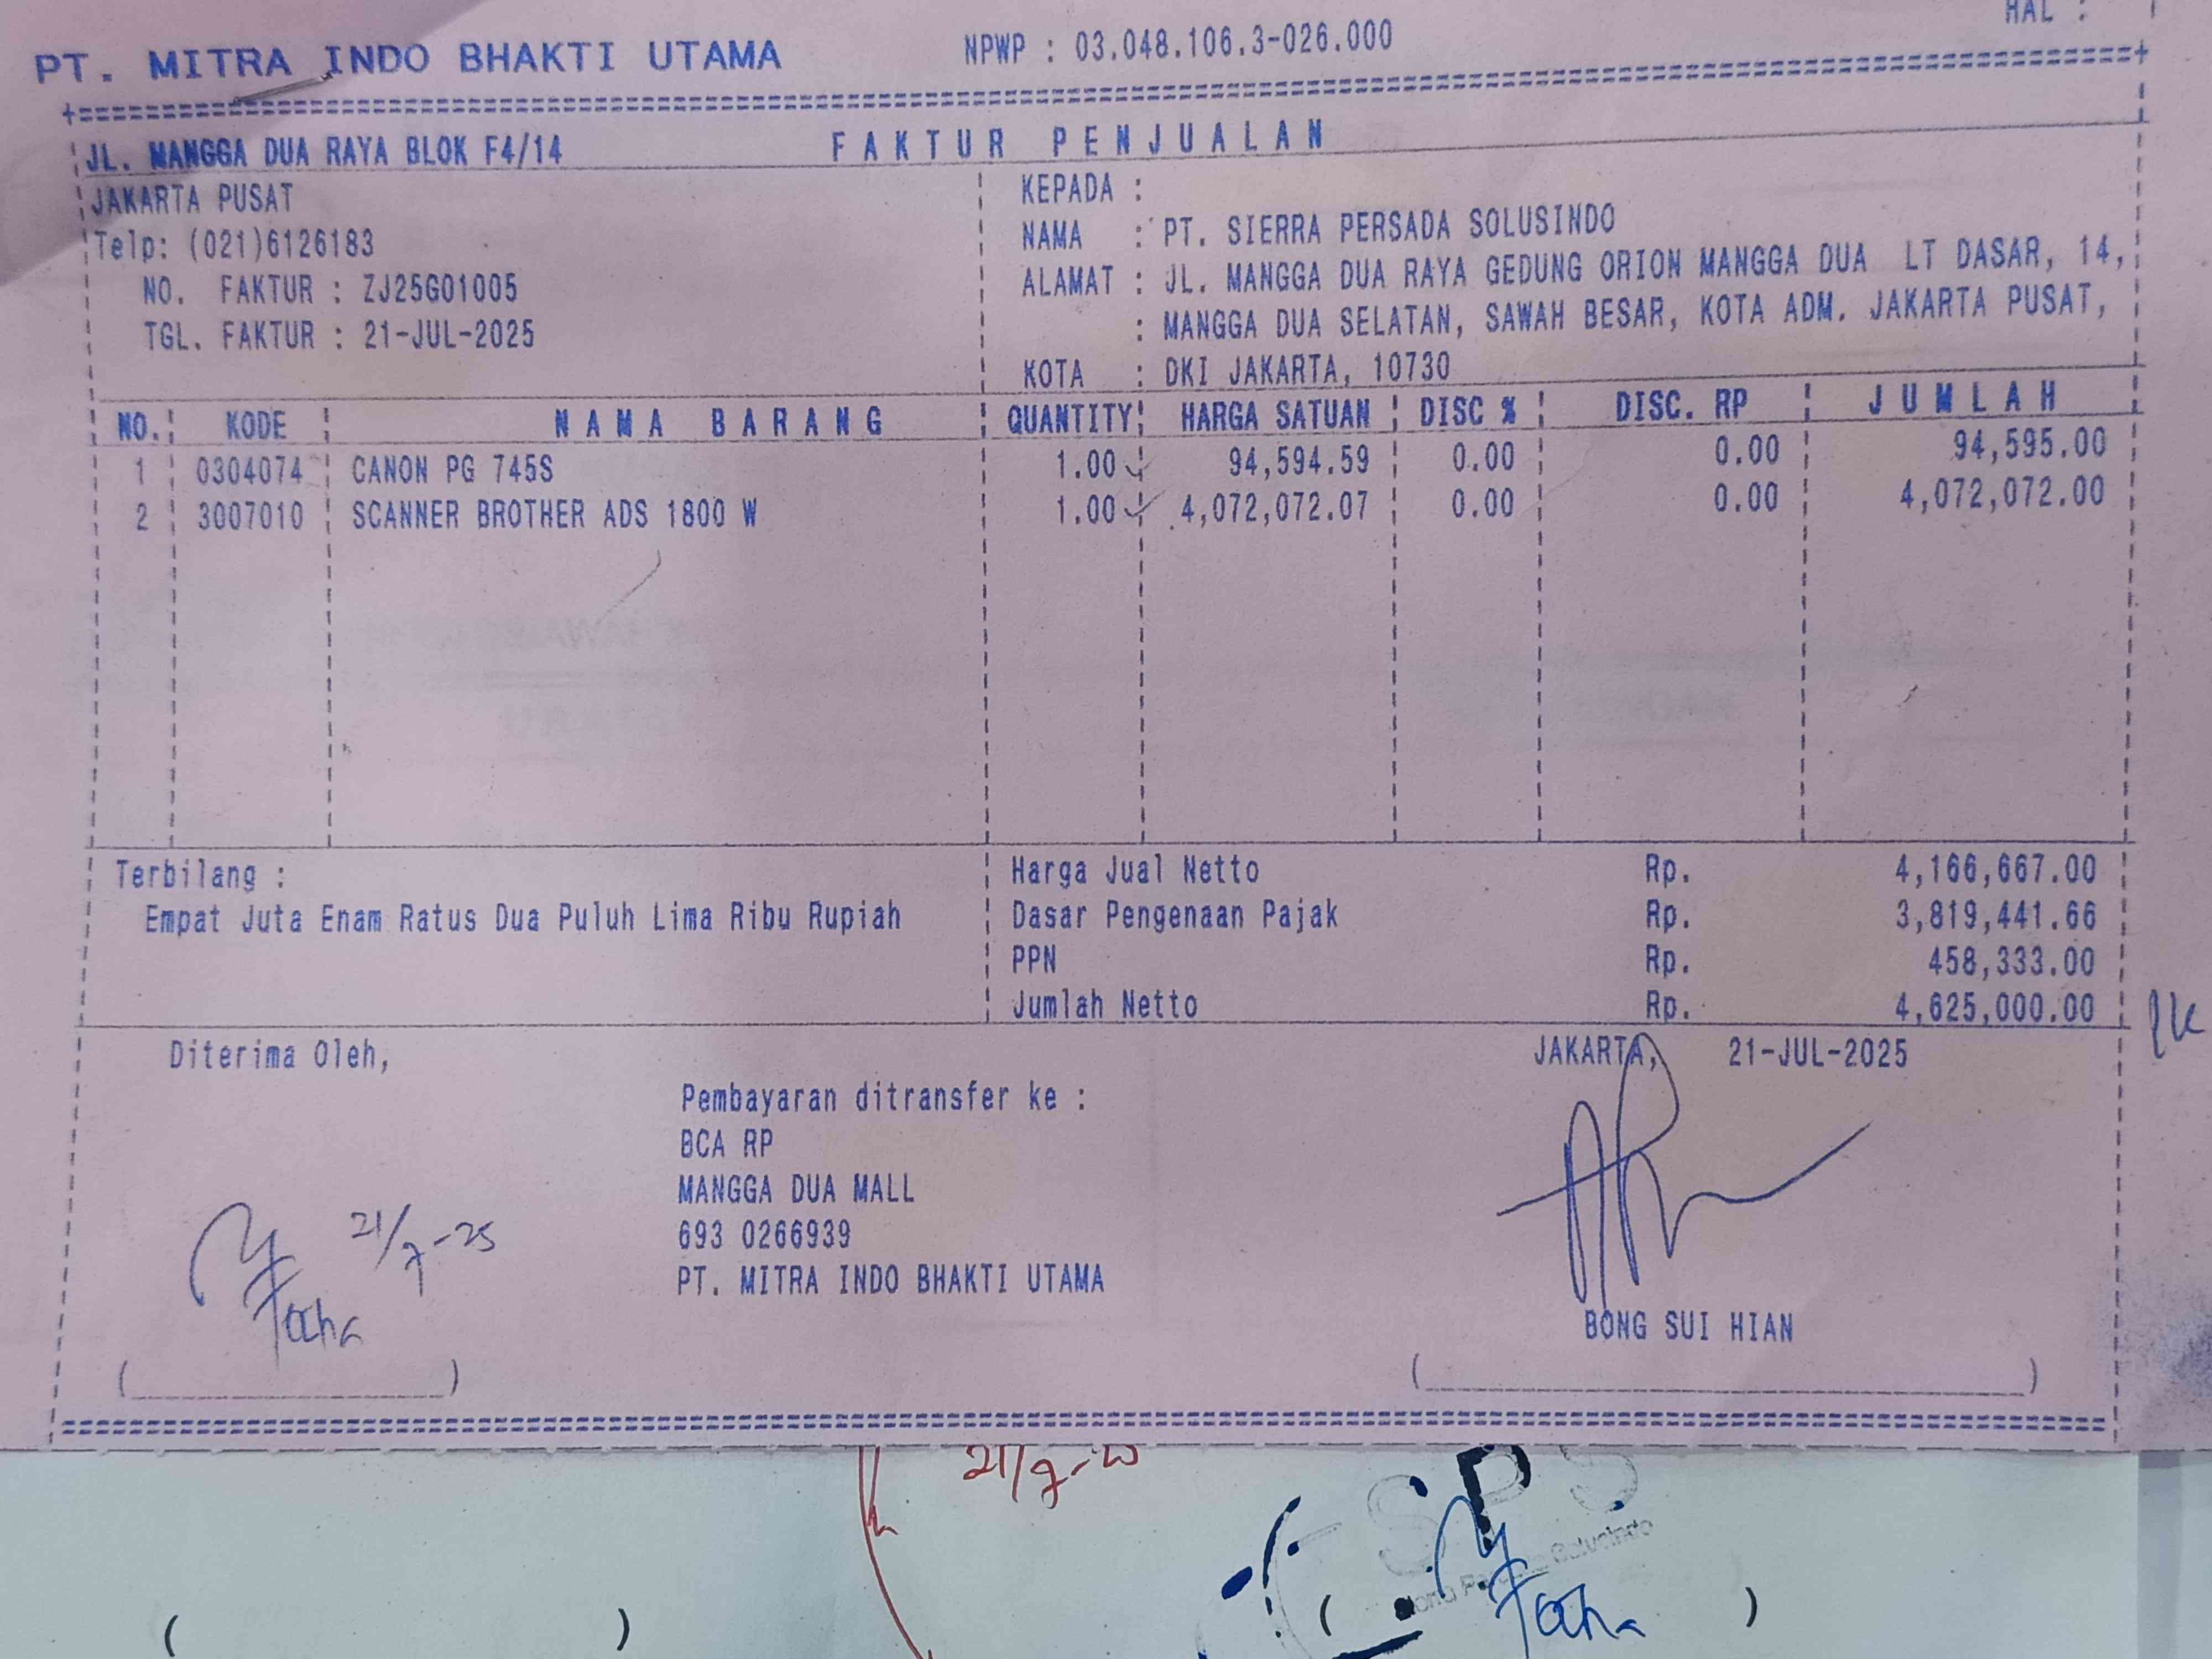 HAL :
PT. MITRA INDO BHAKTI UTAMA NPWP : 03.048.106.3-026.000
JL. MANGGA DUA RAYA BLOK F4/14 FAKTUR PENJUALAN
JAKARTA PUSAT KEPADA :
Telp: (021)6126183 NAMA : PT. SIERRA PERSADA SOLUSINDO
NO. FAKTUR : ZJ25G01005 ALAMAT : JL. MANGGA DUA RAYA GEDUNG ORION MANGGA DUA LT DASAR, 14,
TGL. FAKTUR : 21-JUL-2025 : MANGGA DUA SELATAN, SAWAH BESAR, KOTA ADM. JAKARTA PUSAT,
KOTA : DKI JAKARTA, 10730
NO. KODE NAMA BARANG QUANTITY HARGA SATUAN DISC % DISC. RP JUMLAH
1 0304074 CANON PG 745S 1.00 94,594.59 0.00 0.00 94,595.00
2 3007010 SCANNER BROTHER ADS 1800 W 1.00 4,072,072.07 0.00 0.00 4,072,072.00
Terbilang : Harga Jual Netto Rp. 4,166,667.00
Empat Juta Enam Ratus Dua Puluh Lima Ribu Rupiah Dasar Pengenaan Pajak Rp. 3,819,441.66
PPN Rp. 458,333.00
Jumlah Netto Rp. 4,625,000.00
Diterima Oleh, JAKARTA, 21-JUL-2025
Pembayaran ditransfer ke :
BCA RP
MANGGA DUA MALL
21/7-25 693 0266939
PT. MITRA INDO BHAKTI UTAMA
BONG SUI HIAN
( )
( )
SPS
( ) ( )